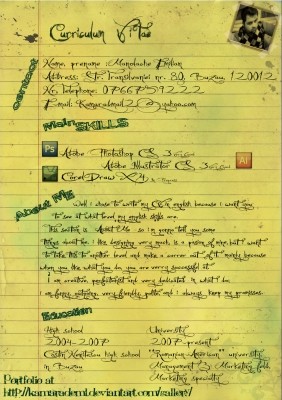 Curriculum Vitae
Contact
Name, prename : Manolache
Address: Str. Transilvaniei nr. 80, Buzau, 120012
No. telephone: 0766759222
Email: @yahoo.com
Main SKILLS
Ps Adobe Photoshop CS 3
Adobe Illustrator CS 3 Ai
Corel Draw X4
About Me
Well i chose to write my CV in english because i want you
to see at what level my english skills are.
This section is About Me so i'm gonna tell you some
things about me. I like designing very much, is a passion of mine, but i want
to take this to another level and make a carrer out of it mainly because
when you like what you do, you are verry successful it
I am creative, perfectionist and very dedicated in what i do
am funny, outgoing, very friendly, polite, and i always keep my promisses.
Education
High school
University
2004-2007
2007-present
Costin Nenitescu high school
"Romanian-American" university
in Buzau
Management & Marketing field,
Marketing specialty
Portfolio at
http://kamarademl.deviantart.com/gallery/